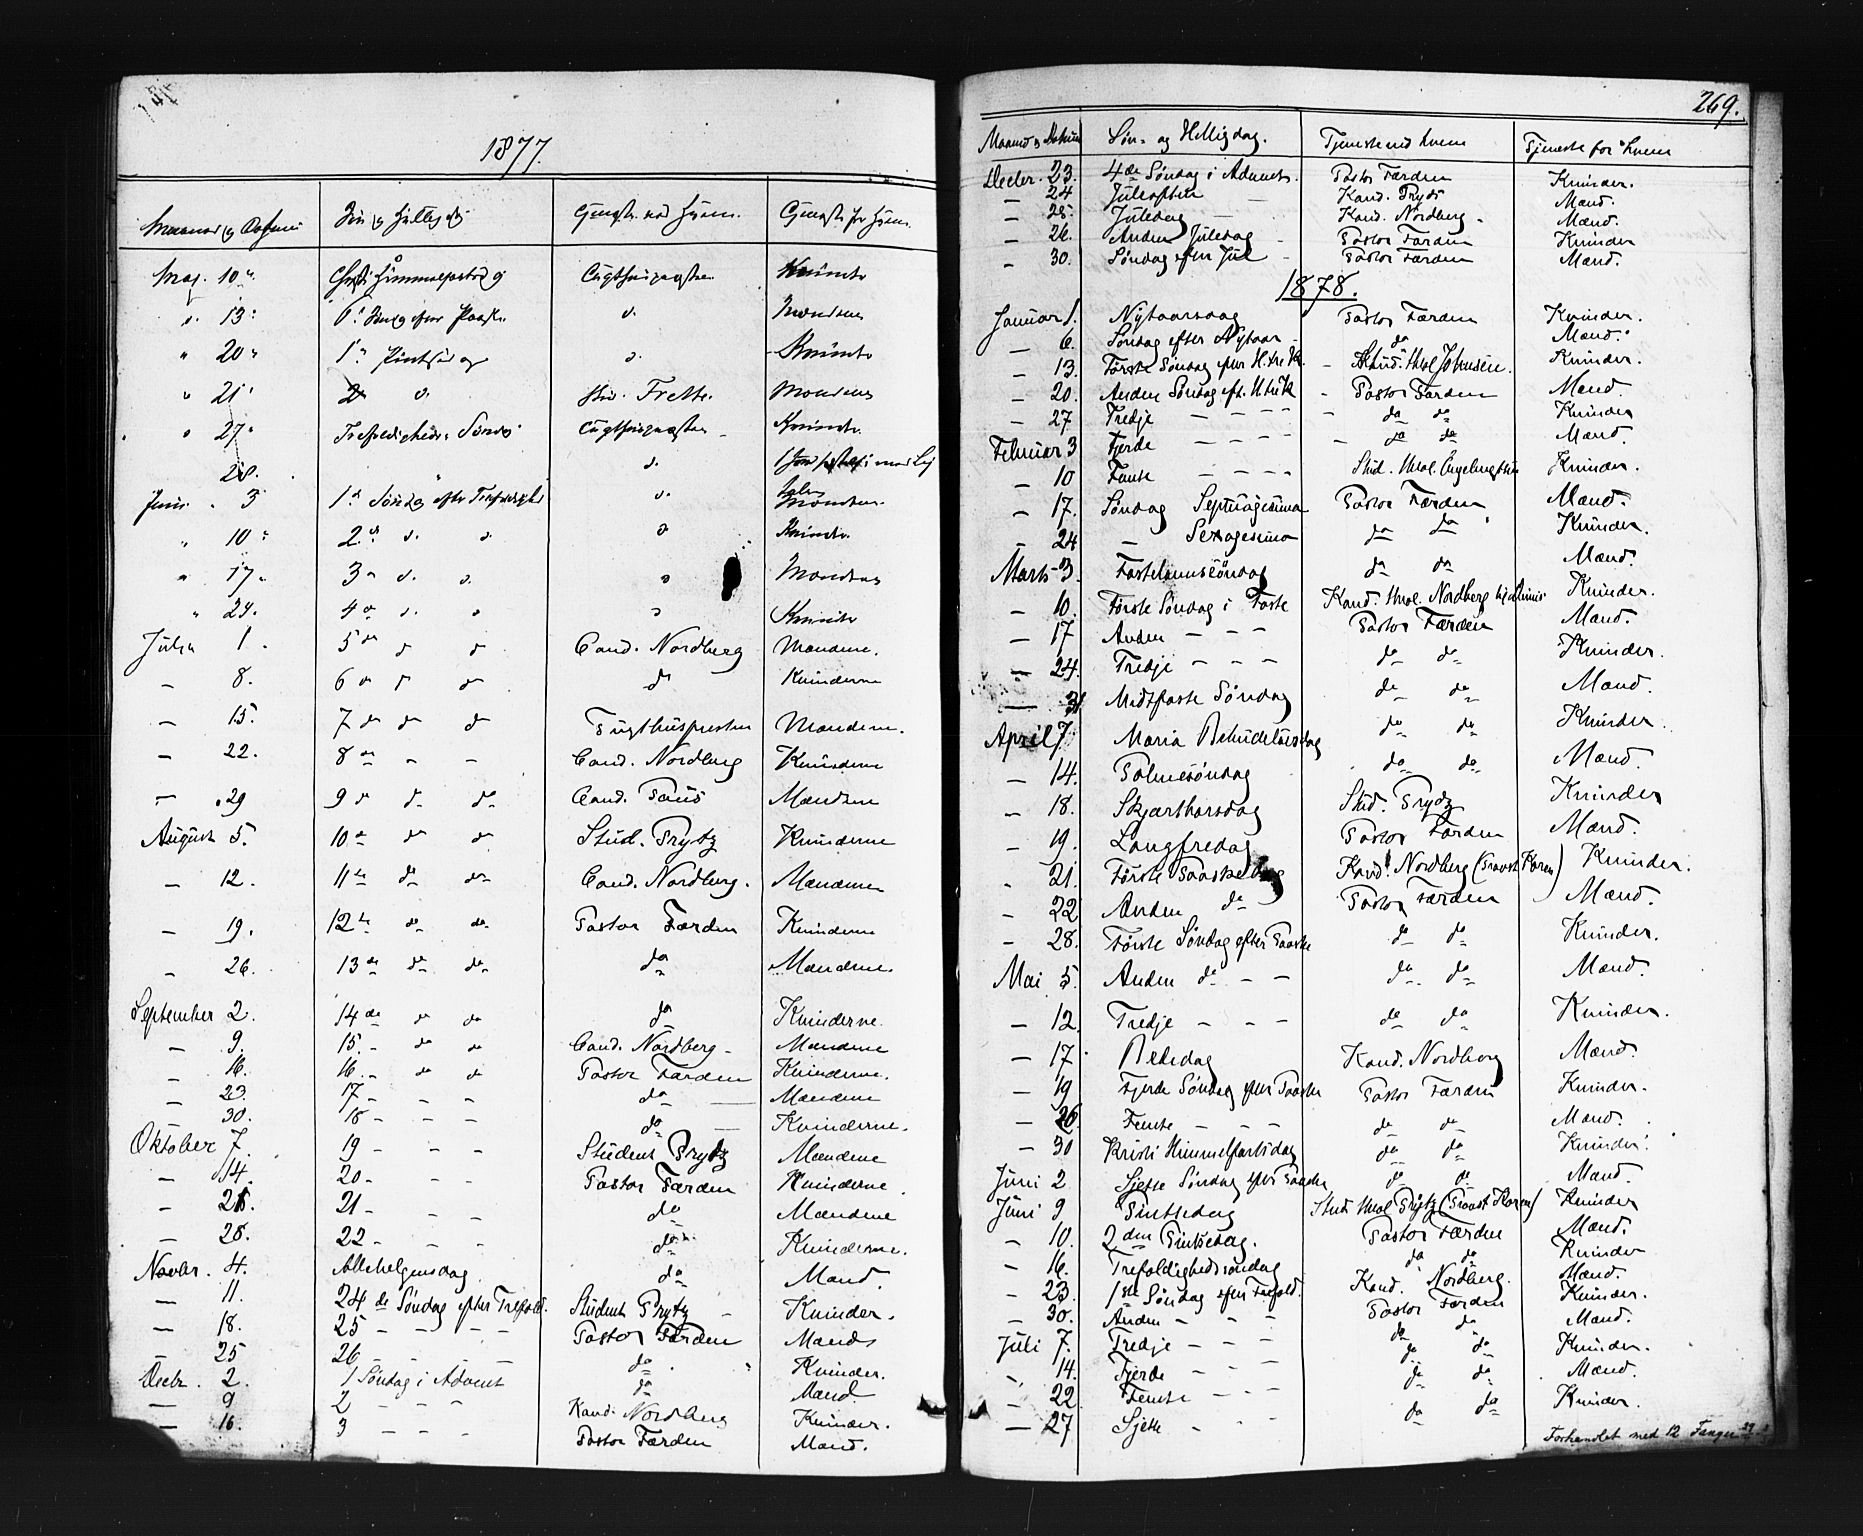 1877.
Mai 10 Christi Himmelfartsdag Tugthuspræsten Kvinder
" 13 6 Søndag efter Paaske d. Mændene
" 20 1. Pintsedag d. Kvinder
" 21 2 d. Stud. Frette. Mændene
" 27 Trefoldigheds Søndag Tugthuspræsten Kvinder
28. d.
Juni 3 1 Søndag efter Trefoldighed d. Mændene
" 10 2 d. d. d Kvinder
" 17 3 d. d. Mændene
" 24. 4 d. Kvinder
Julii 1 5 de d d Cand. Nordberg Mændene.
— 8. 6 d d do Kvinderne
— 15. 7 do do do Tugthuspresten Mændene.
— 22. 8 de – – Cand. Nordberg Kvinderne
— 29 9 d do do Cand. Mændene
August 5. 10 do do Stud. Prytz Kvinderne
— 12. 11 te do do Cand. Nordberg. Mændene
— 19. 12 te do do Pastor Færden Kvinderne
— 26. 13 de do do do Mændene.
September 2. 14 de do do do Kvinderne.
— 9. 15. – do do Cand. Nordberg – Mændene
— 16. 16. – do do Pastor Færden Kvinderne.
— 23. 17 – – – do Mændene
— 30. 18 – – – do Kvinderne.
Oktober 7. 19 – – – Student Prytz Mændene
— 14. 20 – – – Pastor Færden Kvinderne.
— 21. 21 – – – do Mændene
— 28. 22 – – – do Kvinderne.
Novbr. 4. Allehelgensdag do Mænd.
— 11. 24 de Søndag efter Trefold. Student Prytz – Kvinder.
— 18. 25 – – – – Pastor Færden Mænd
— 25 26 – – – do Kvinder.
Decbr. 2. 1 Søndag i Advent do Mænd
— 9 2 – – – Kand. Nordberg Kvinder.
— 16. 3 – – – Pastor Færden Mænd.
269.
Maaned og Datum Søn- og Helligdag. Tjeneste ved hvem Tjeneste for hvem
Decbr. 23. 4de Søndag i Advent. Pastor Færden Kvinder.
— 24 Juleaften – Kand. Prytz Mænd.
— 25. Juledag – Kand. Nordberg. Mænd.
— 26. Anden Juledag – Pastor Færden Kvinder
— 30. Søndag efter Jul – Pastor Færden Mænd.
1878.
Januar 1. Nytaarsdag Pastor Færden Kvinder.
— 6. Søndag efter Nytaar – do Mænd.
— 13. Første Søndag efter H. tre K. – Stud. theol Johnsen. Kvinder.
— 20. Anden Søndag eft. H tre K – Pastor Færden Mænd.
— 27 Tredje – – – – – do do Kvinder
Februar 3 Fjerde – – – – – do do Mænd.
— 10 Femte – – – – Stud. theol. Kvinder.
— 17. Søndag Septuagesima Pastor Færden Mænd.
— 24 — Sexagesima do do Kvinder.
Marts 3. Fastelavnssøndag do do Mænd.
— 10. Første Søndag i Faste Kand. theol. Nordberg Kvinder.
— 17 Anden – – – Pastor Færden Mænd.
— 24. Tredje – – – do do Kvinder.
— 31 Midtfaste Søndag do do Mænd.
April 7 Maria Bebudelsesdag do do Kvinder.
— 14. Palmesøndag do do Mænd.
— 18. Skjærthorsdag Stud. Prytz Kvinder
— 19. Langfredag Pastor Færden Mænd.
— 21. Første Paaskedag Kand. Nordberg (Provst Koren) Kvinder.
— 22 Anden do Pastor Færden Mænd.
— 28. Første Søndag efter Paaske do do Kvinder.
Mai 5. Anden do – – do do Mænd.
— 12. Tredje – – – do do Kvinder.
— 17 Bededag Kand. Nordberg Mænd.
— 19 Fjerde Søndag efter Paaske Pastor Færden Kvinder.
— 26. Femte – – – do do Mænd.
— 30 Kristi Himmelfartsdag do do Kvinder.
Juni 2 Sjette Søndag efter Paaske do do Mænd.
Juni 9 Pintsedag Stud theol Prytz (Provst Koren) Kvinder
— 10. 2den Pintsedag. Pastor Færden Mænd.
— 16. Trefoldighedssøndag do do Kvinder
— 23. 1ste Søndag efter Trefold. Kand. Nordberg. Mænd.
— 30. Anden – – – Pastor Færden Kvinder.
Juli 7. Tredje – – – do do Mænd.
— 14. Fjerde – – – do do Kvinder.
— 22 Femte – – – do do Mænd.
— 27 Sjette – – – do do Kvinder.
Forhandlet med 12 Fanger